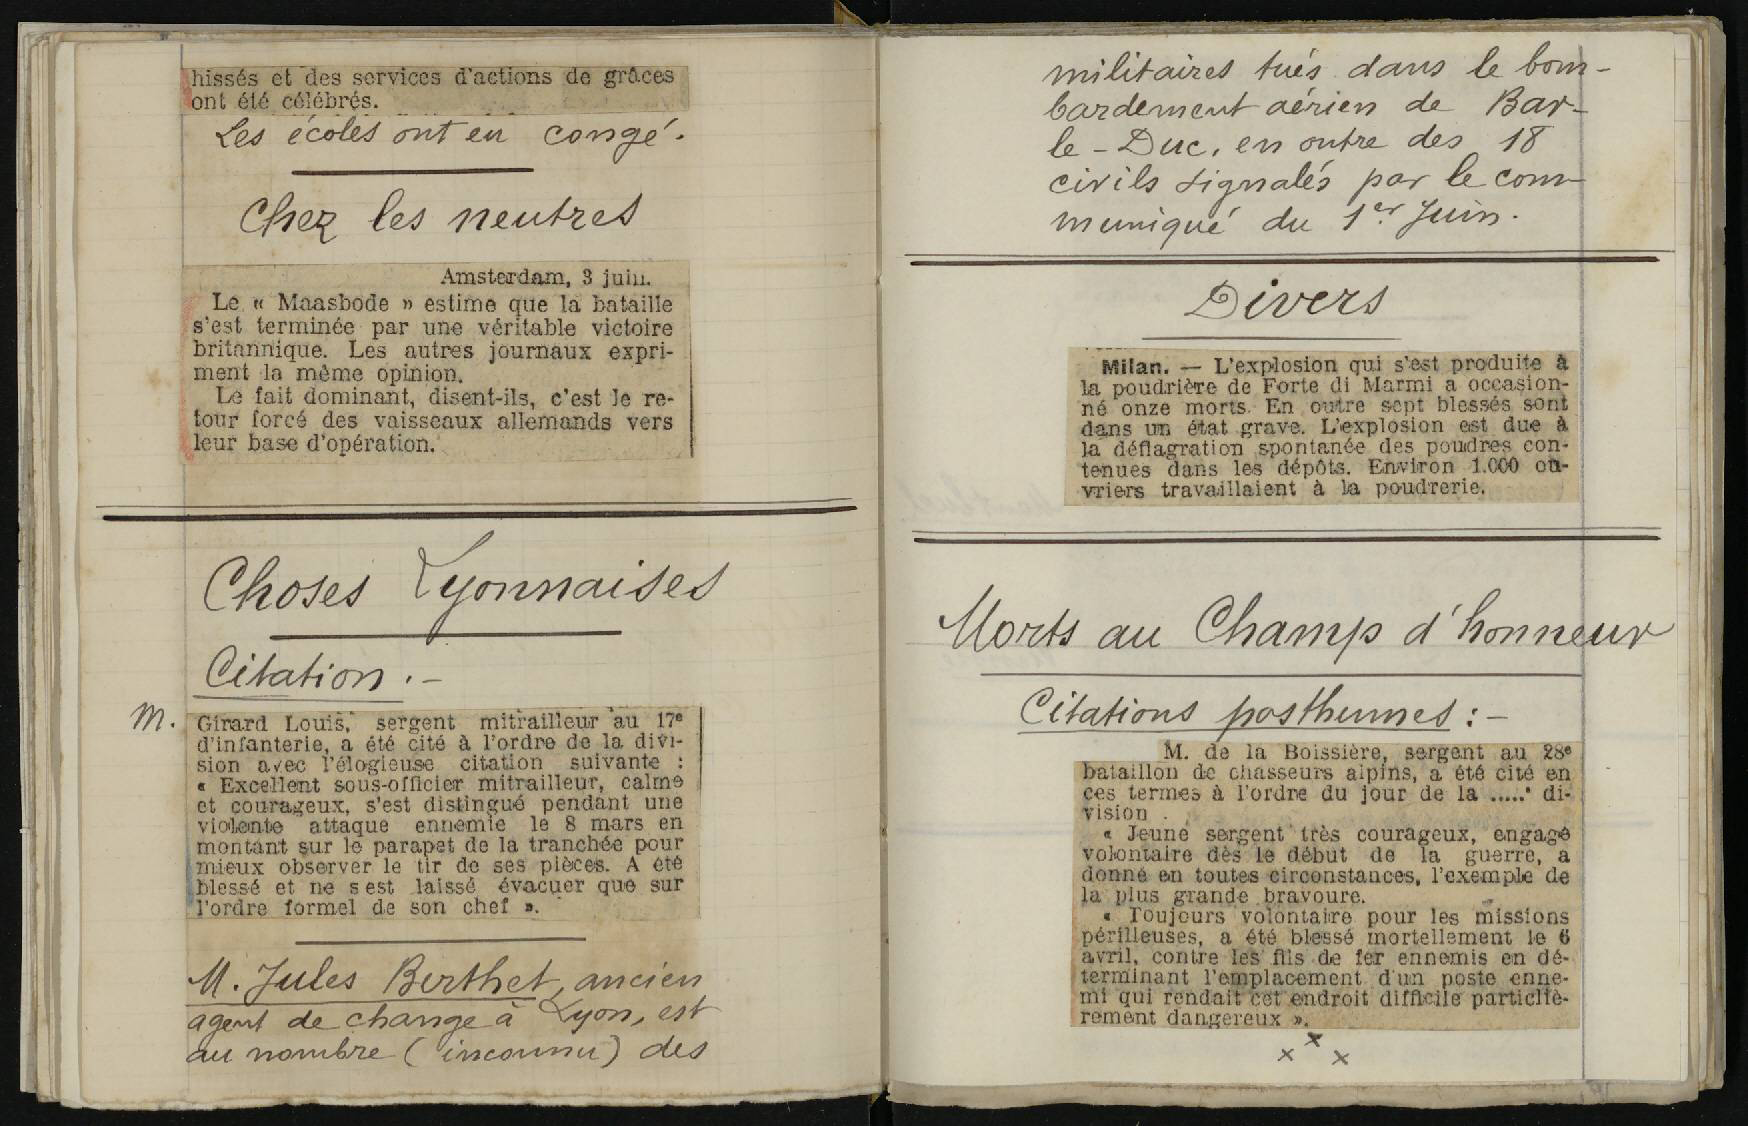 hissés et des services d'actions de grâces
ont été célébrés.
Les écoles ont eu congé.
Chez les neutres
Amsterdam, 3 juin.
Le « Maasbode » estime que la bataille
s'est terminée par une véritable victoire
britannique. Les autres journaux expri-
ment la même opinion.
Le fait dominant, disent-ils, c'est le re-
tour forcé des vaisseaux allemands vers
leur base d'opération.
Choses Lyonnaises
Citation.-
M. Girard Louis, sergent mitrailleur au 17e
d'infanterie, a été cité à l'ordre de la divi-
sion avec l'élogieuse citation suivante :
« Excellent sous-officier mitrailleur, calme
et courageux, s'est distingué pendant une
violente attaque ennemie le 8 mars en
montant sur le parapet de la tranchée pour
mieux observer le tir de ses pièces. A été
blessé et ne s'est laissé évacuer que sur
l'ordre formel de son chef ».
M. Jules Berthet, ancien
agent de change à Lyon, est
au nombre (inconnu) des
militaires tués dans le bom-
bardement aérien de Bar-
le-Duc, en outre des 18
civils signalés par le com-
muniqué du 1er Juin.
Divers
Milan. — L'explosion qui s'est produite à
la poudrière de Forte di Marmi a occasion-
né onze morts. En outre sept blessés sont
dans un état grave. L'explosion est due à
la déflagration spontanée des poudres con-
tenues dans les dépôts. Environ 1.000 ou-
vriers travaillaient à la poudrerie.
Morts au Champ d'honneur
Citations posthumes :-
M. de la Boissière, sergent au 28e
bataillon de chasseurs alpins, a été cité en
ces termes à l'ordre du jour de la ..... di-
vision .
« Jeune sergent très courageux, engagé
volontaire dès le début de la guerre, a
donné en toutes circonstances, l'exemple de
la plus grande bravoure.
« Toujours volontaire pour les missions
périlleuses, a été blessé mortellement le 6
avril, contre les fils de fer ennemis en dé-
terminant l'emplacement d'un poste enne-
mi qui rendait cet endroit difficile particliè-
rement dangereux ».
x x x